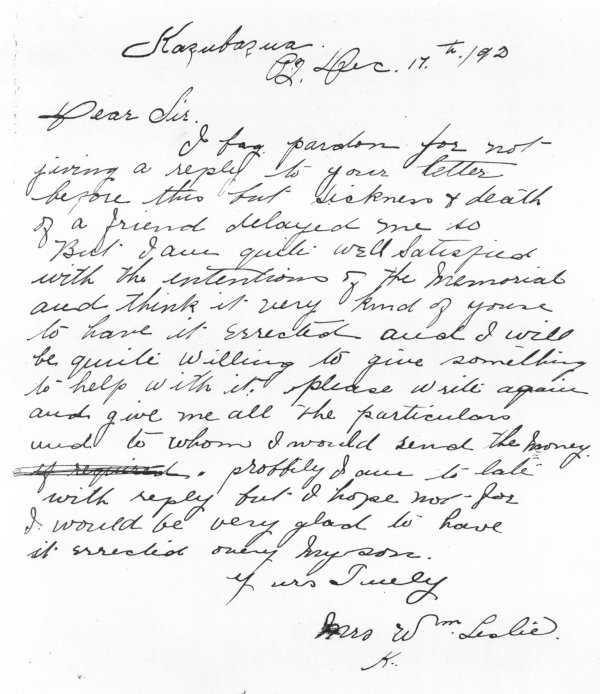 Kazubazua.
P.Q. Dec. 17.th./192
Dear Sir.
I bag pardon for not
giving a reply to your letter
before this but sickness & death
of a friend delayed me so
But I am quite well satisfied
with the intentions of the Memorial
and think it very kind of youse
to have it errected and I will
be quite willing to give something
to help with it. please write again
and give me all the particulars
and to whom I would send the money.
if required. probbily I am to late
with reply but I hope not for
I would be very glad to have
it errected overy my son.
yours Truely
Mrs Wm. Leslie.
K.